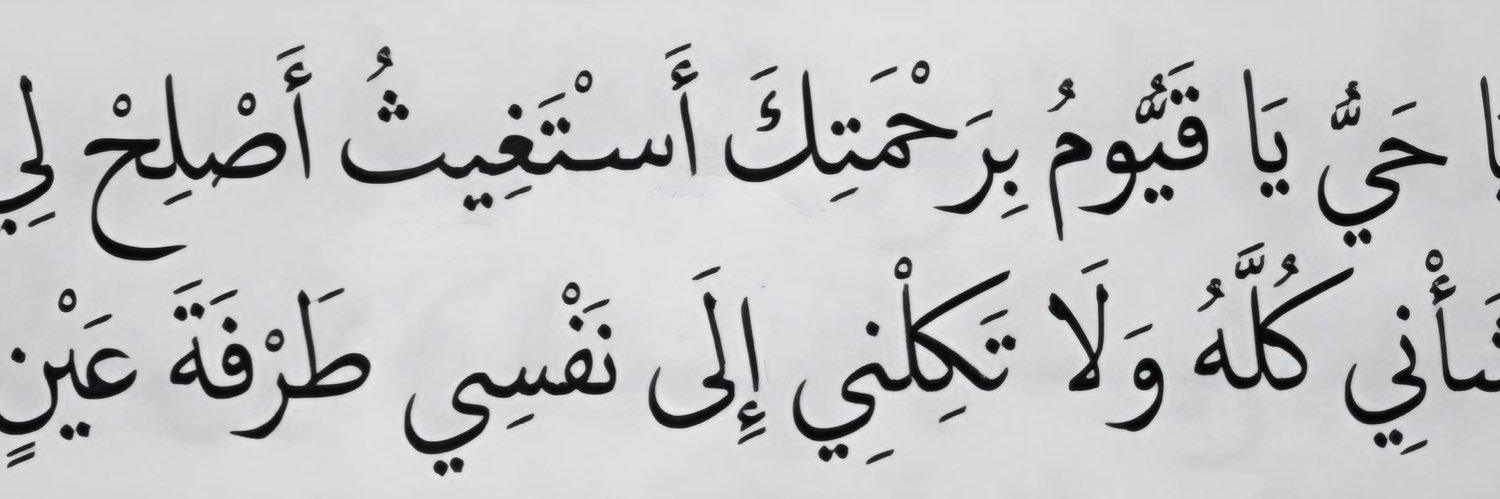 يَا حَيُّ يَا قَيُّومُ بِرَحْمَتِكَ أَسْتَغِيثُ أَصْلِحْ لِي
شَأْنِي كُلَّهُ وَلَا تَكِلْنِي إِلَى نَفْسِي طَرْفَةَ عَيْنٍ